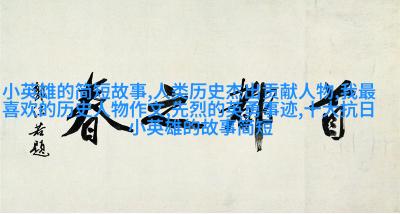 小英雄的简短故事,人类历史杰出贡献人物,我最
喜欢的历史人物作文,先烈的英勇事迹,十大抗日
小英雄的故事简短
春
若题